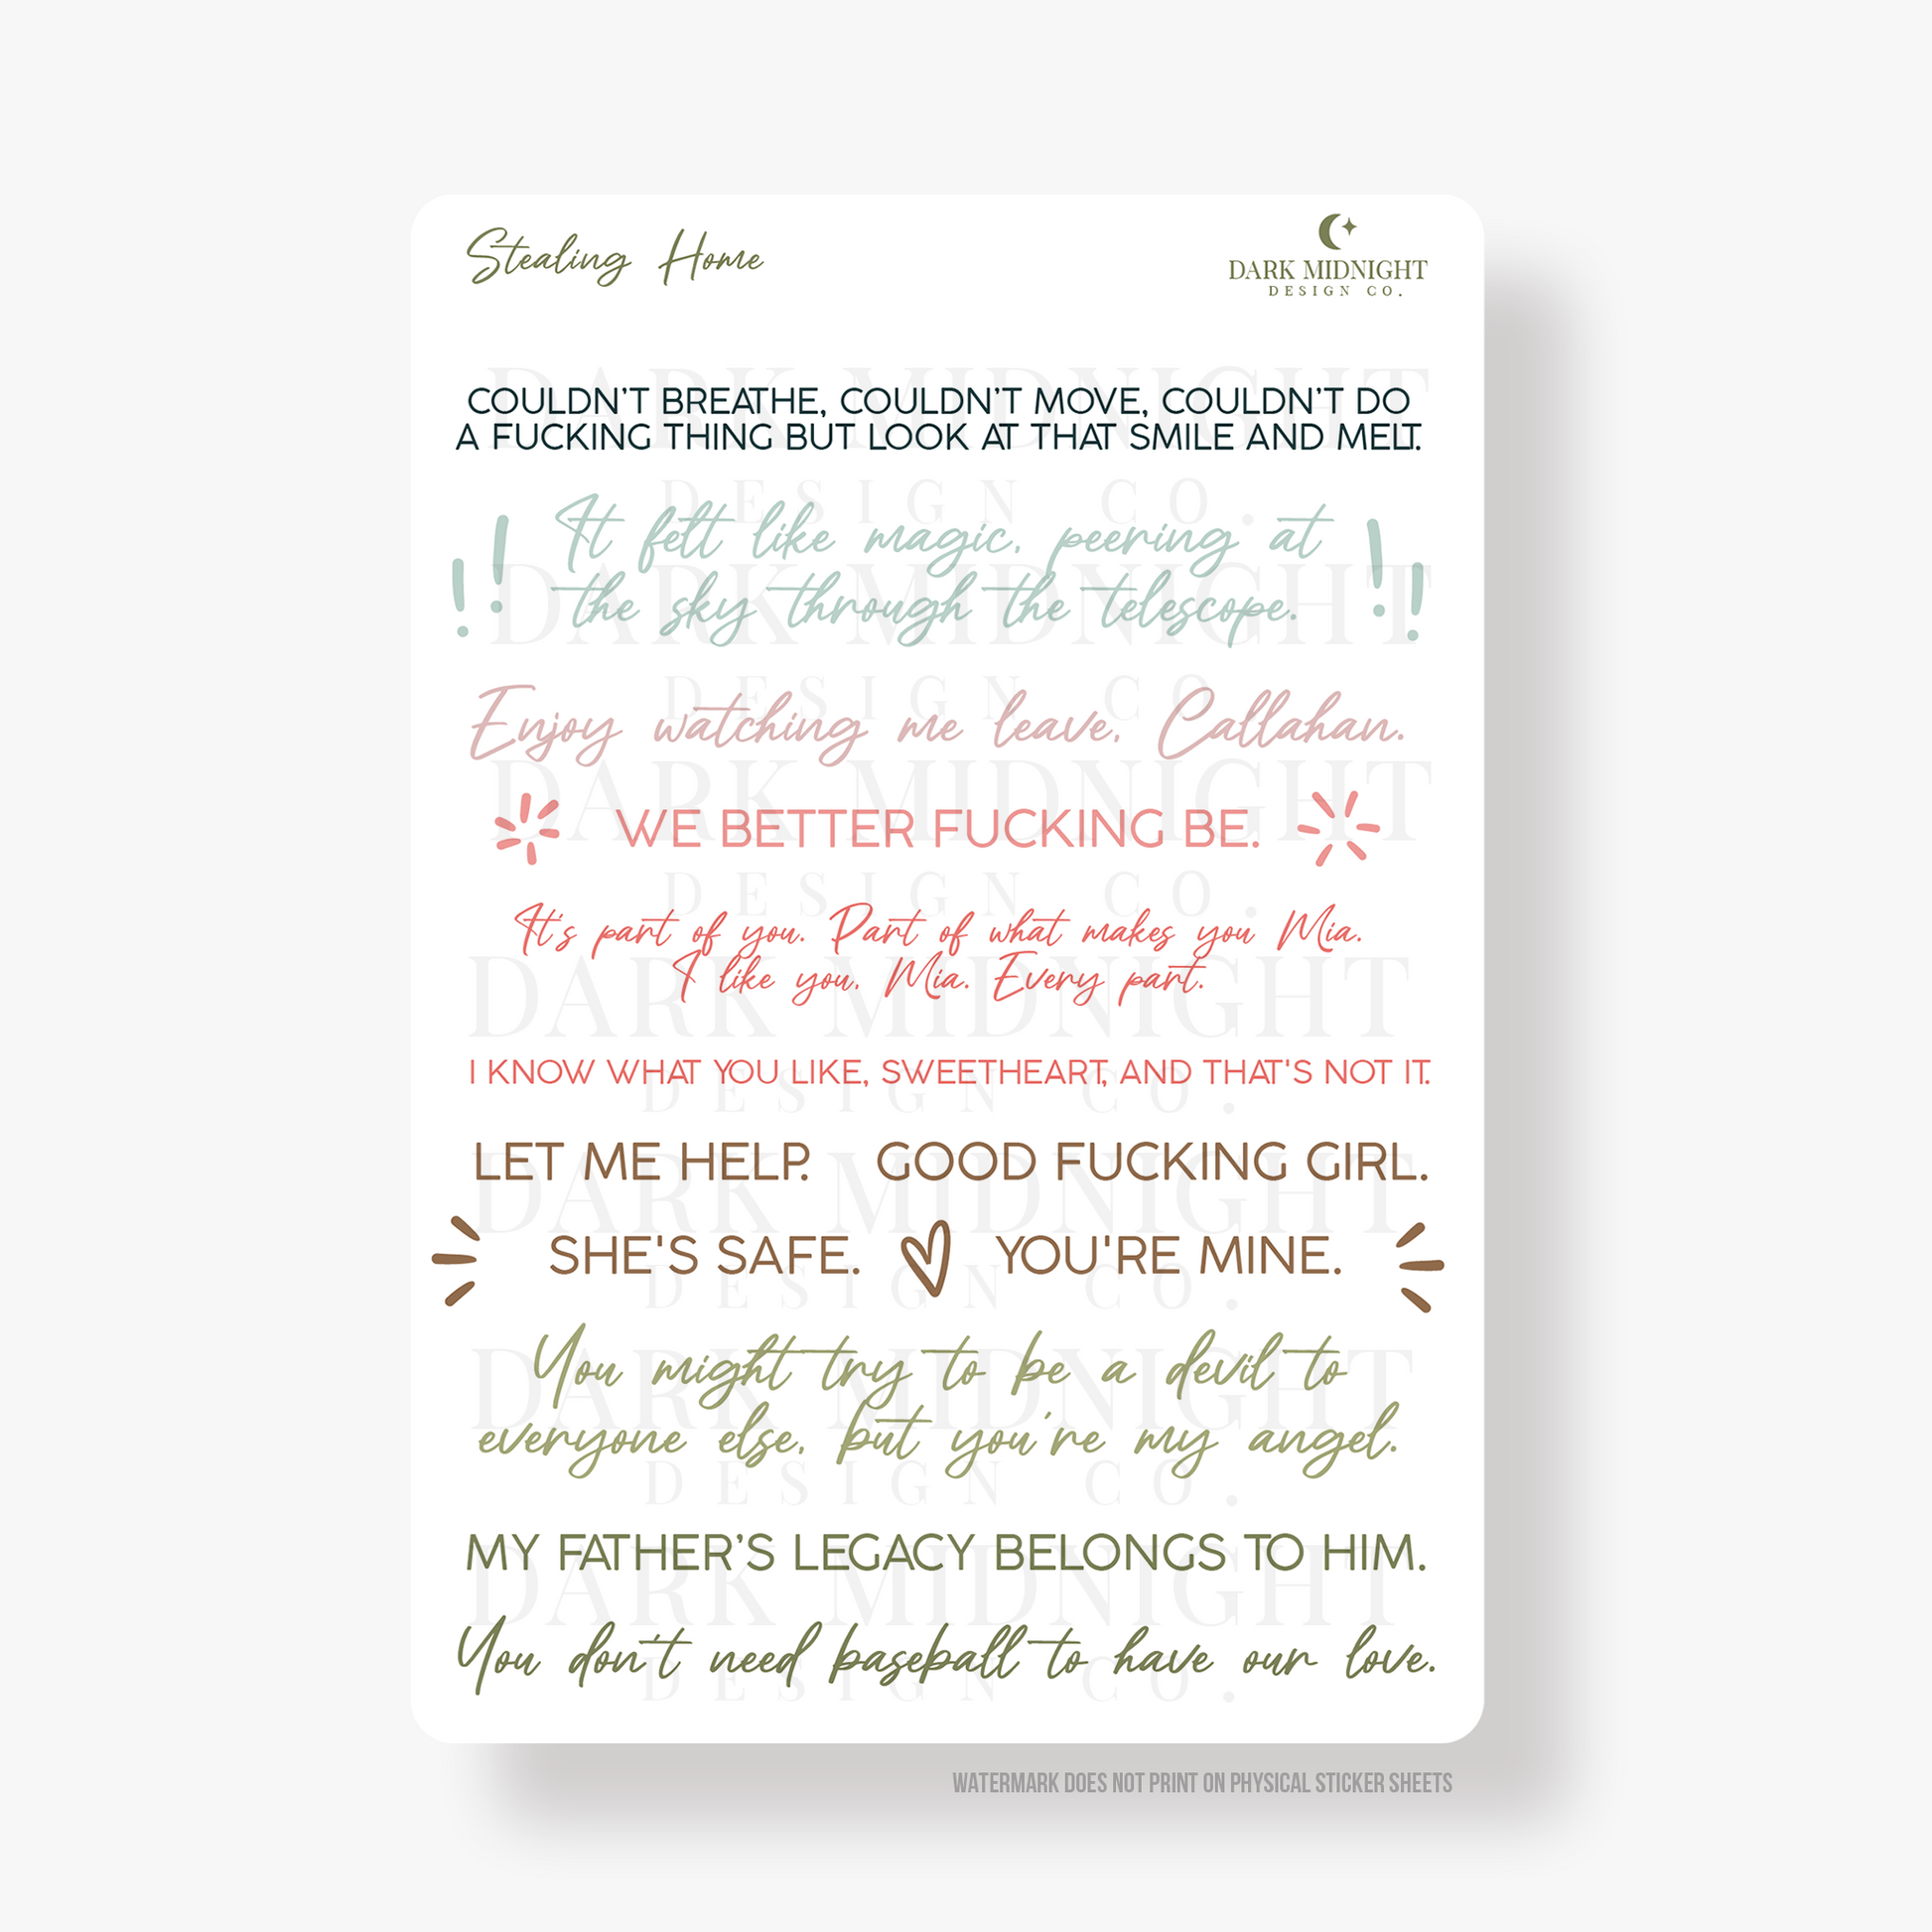 Stealing Home
DARK MIDNIGHT
DESIGN CO.
COULDN'T BREATHE, COULDN'T MOVE, COULDN'T DO
A FUCKING THING BUT LOOK AT THAT SMILE AND MELT.
It felt like magic, peering at
the sky through the telescope.
!! !!
Enjoy watching me leave, Callahan.
WE BETTER FUCKING BE.
It's part of you. Part of what makes you Mia.
I like you, Mia. Every part.
I KNOW WHAT YOU LIKE, SWEETHEART, AND THAT'S NOT IT.
LET ME HELP. GOOD FUCKING GIRL.
SHE'S SAFE. YOU'RE MINE.
You might try to be a devil to
everyone else, but you're my angel.
MY FATHER'S LEGACY BELONGS TO HIM.
You don't need baseball to have our love.
DARK MIDNIGHT
DESIGN CO.
DARK MIDNIGHT
DESIGN CO.
DARK MIDNIGHT
DESIGN CO.
DARK MIDNIGHT
DESIGN CO.
DARK MIDNIGHT
DESIGN CO.
DARK MIDNIGHT
DESIGN CO.
DARK MIDNIGHT
DESIGN CO.
WATERMARK DOES NOT PRINT ON PHYSICAL STICKER SHEETS